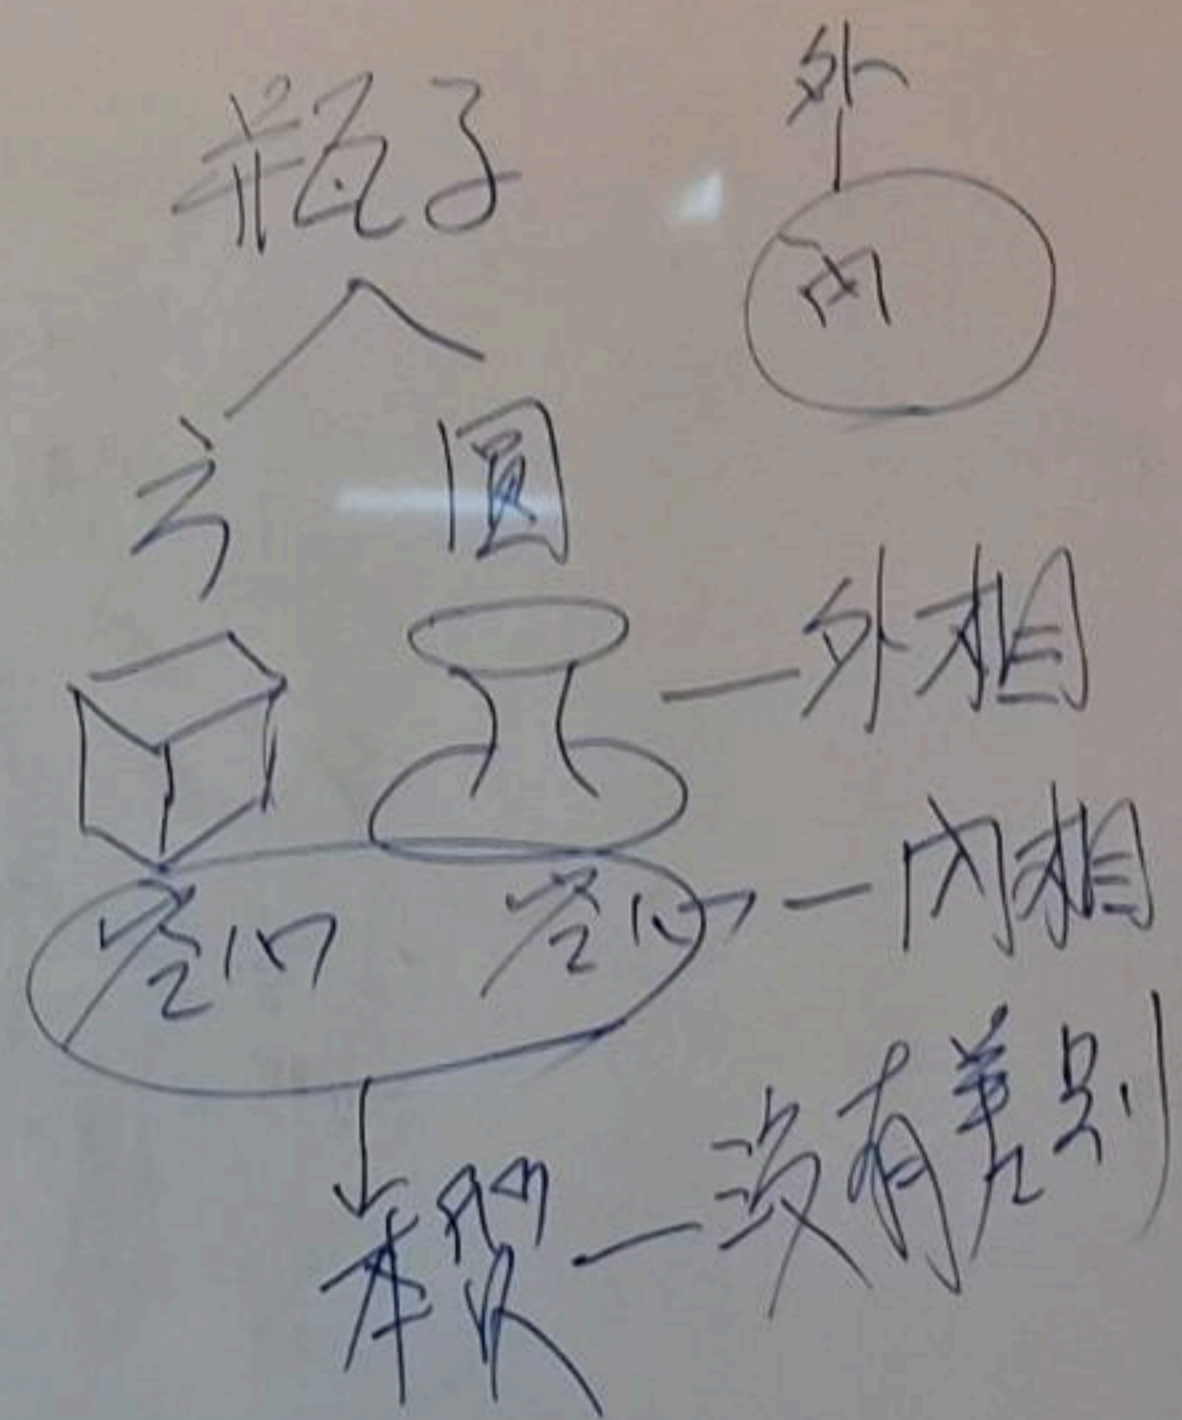 瓶子
外
内
方 圆
外相
空间 空间
内相
本质
没有差别